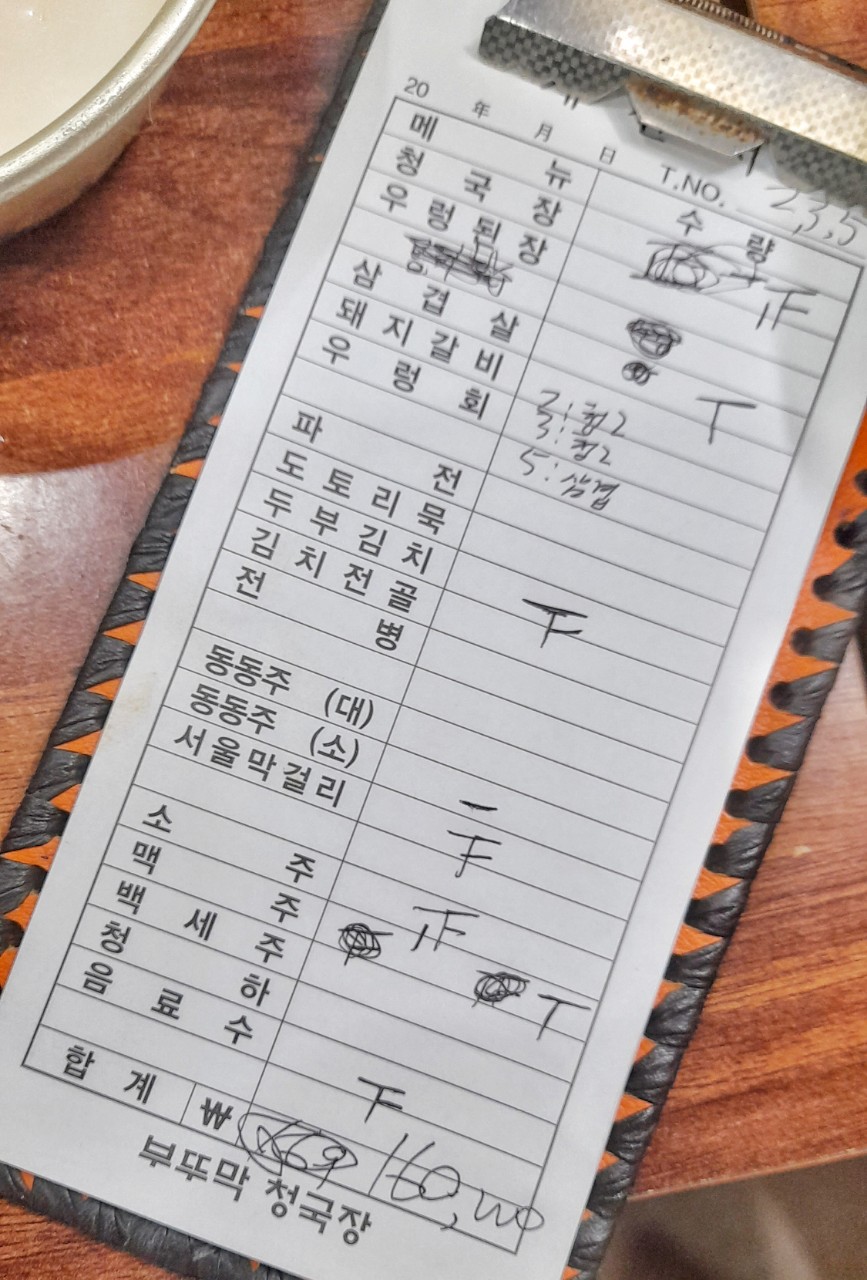 20 年 月 日 T.NO. 2,3,5
메 뉴 수 량
청 국 장
우 렁 된 장
삼 겹 살
돼 지 갈 비 T
우 렁 회
2: 청2
3: 청2
5: 삼겹
파 전
도 토 리 묵
두 부 김 치
김 치 전 골
전 병
동동주 (대)
동동주 (소)
서울막걸리
소 주
맥 주
백 세 주
청 하 T
음 료 수
합 계 ₩ 160,000
부뚜막 청국장